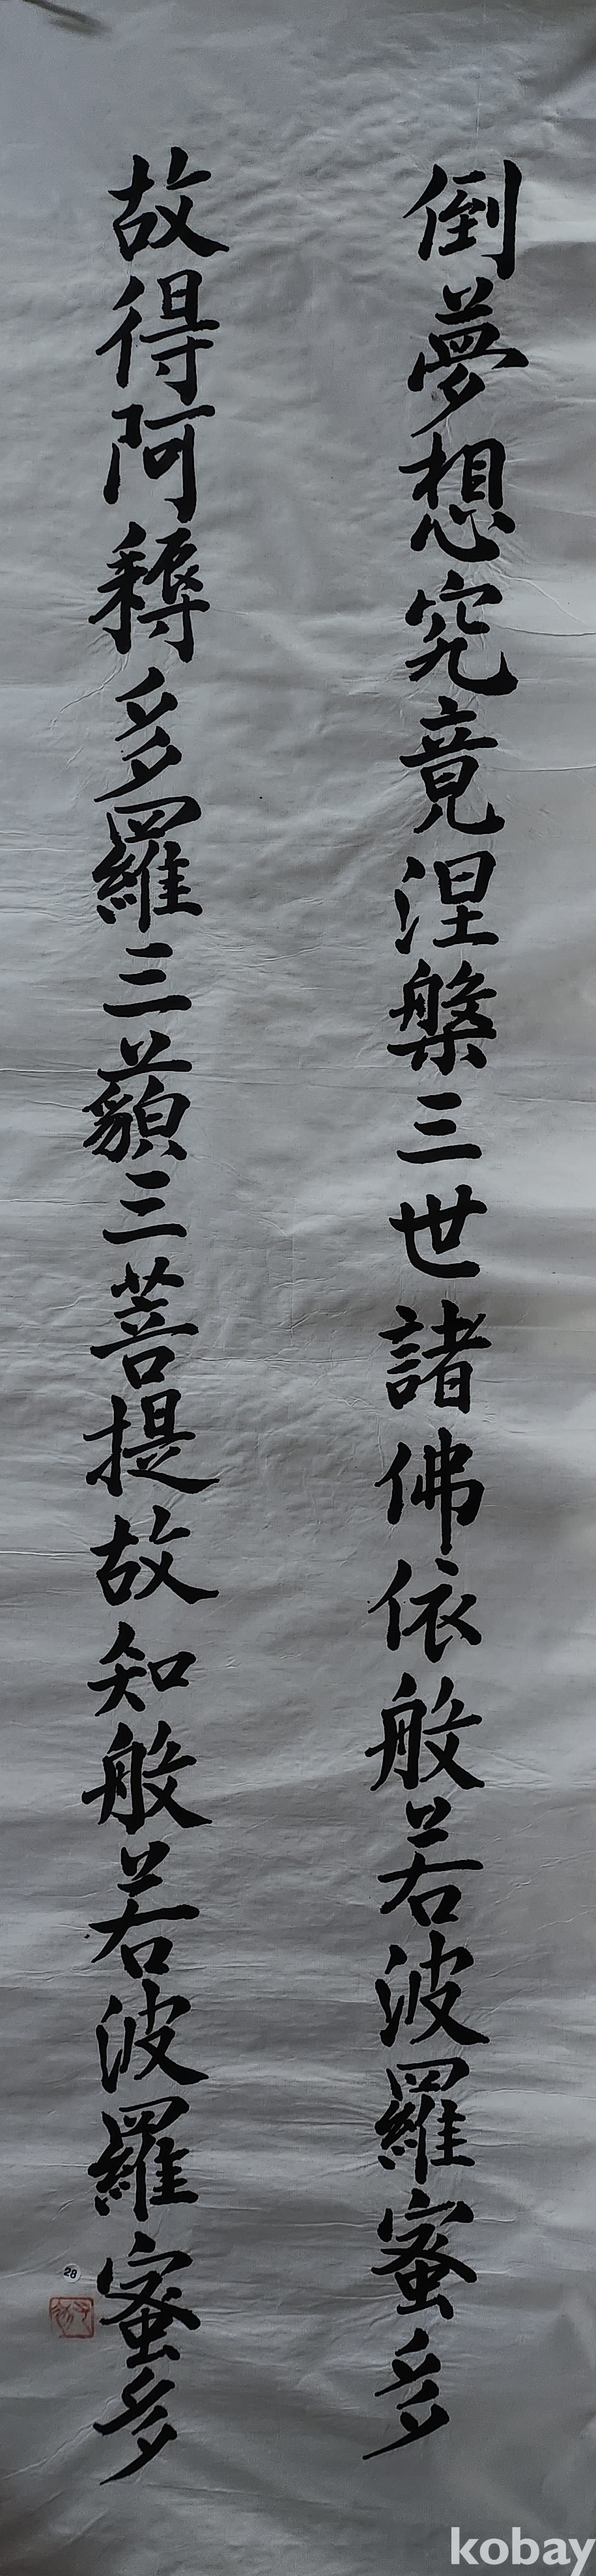 倒夢想究竟涅槃三世諸佛依般若波羅蜜多
故得阿耨多羅三藐三菩提故知般若波羅蜜多
28
kobay